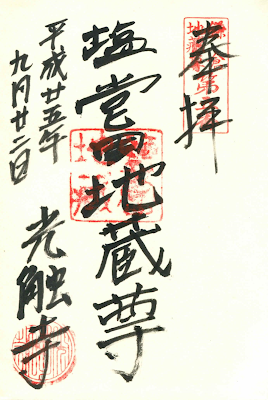 奉拝
塩嘗地蔵尊
平成廿五年
九月廿二日
光触寺